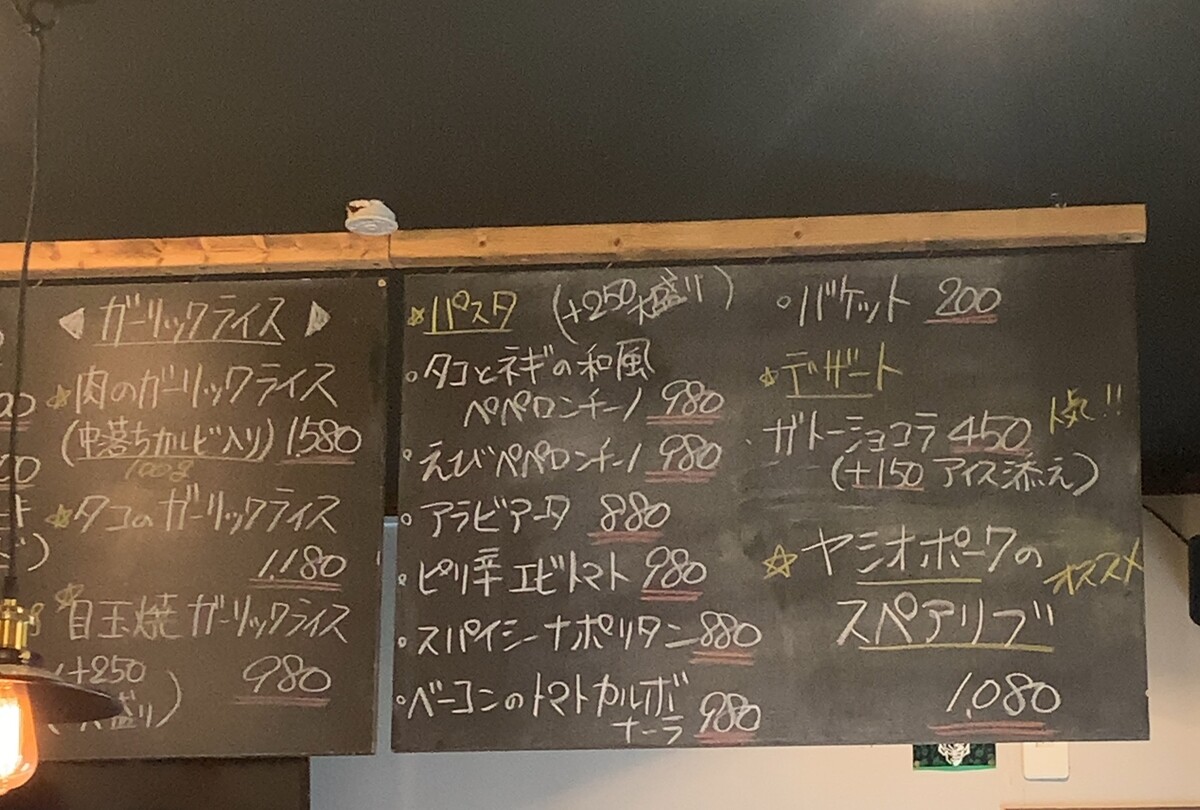 ◁ ガーリックライス ▷
☆肉のガーリックライス
(中落ちカルビ入り) 1,580
100g
☆タコのガーリックライス
1,180
☆目玉焼ガーリックライス
(+250 980
盛り)
☆パスタ (+250大盛り)
。タコとネギの和風
ペペロンチーノ 980
。えびペペロンチーノ 980
。アラビアータ 880
。ピリ辛エビトマト 980
。スパイシーナポリタン 880
。ベーコンのトマトカルボ
ナーラ 980
。バケット 200
☆デザート
・ガトーショコラ 450 人気!!
(+150 アイス添え)
☆ヤシオポークの オススメ
スペアリブ
1,080